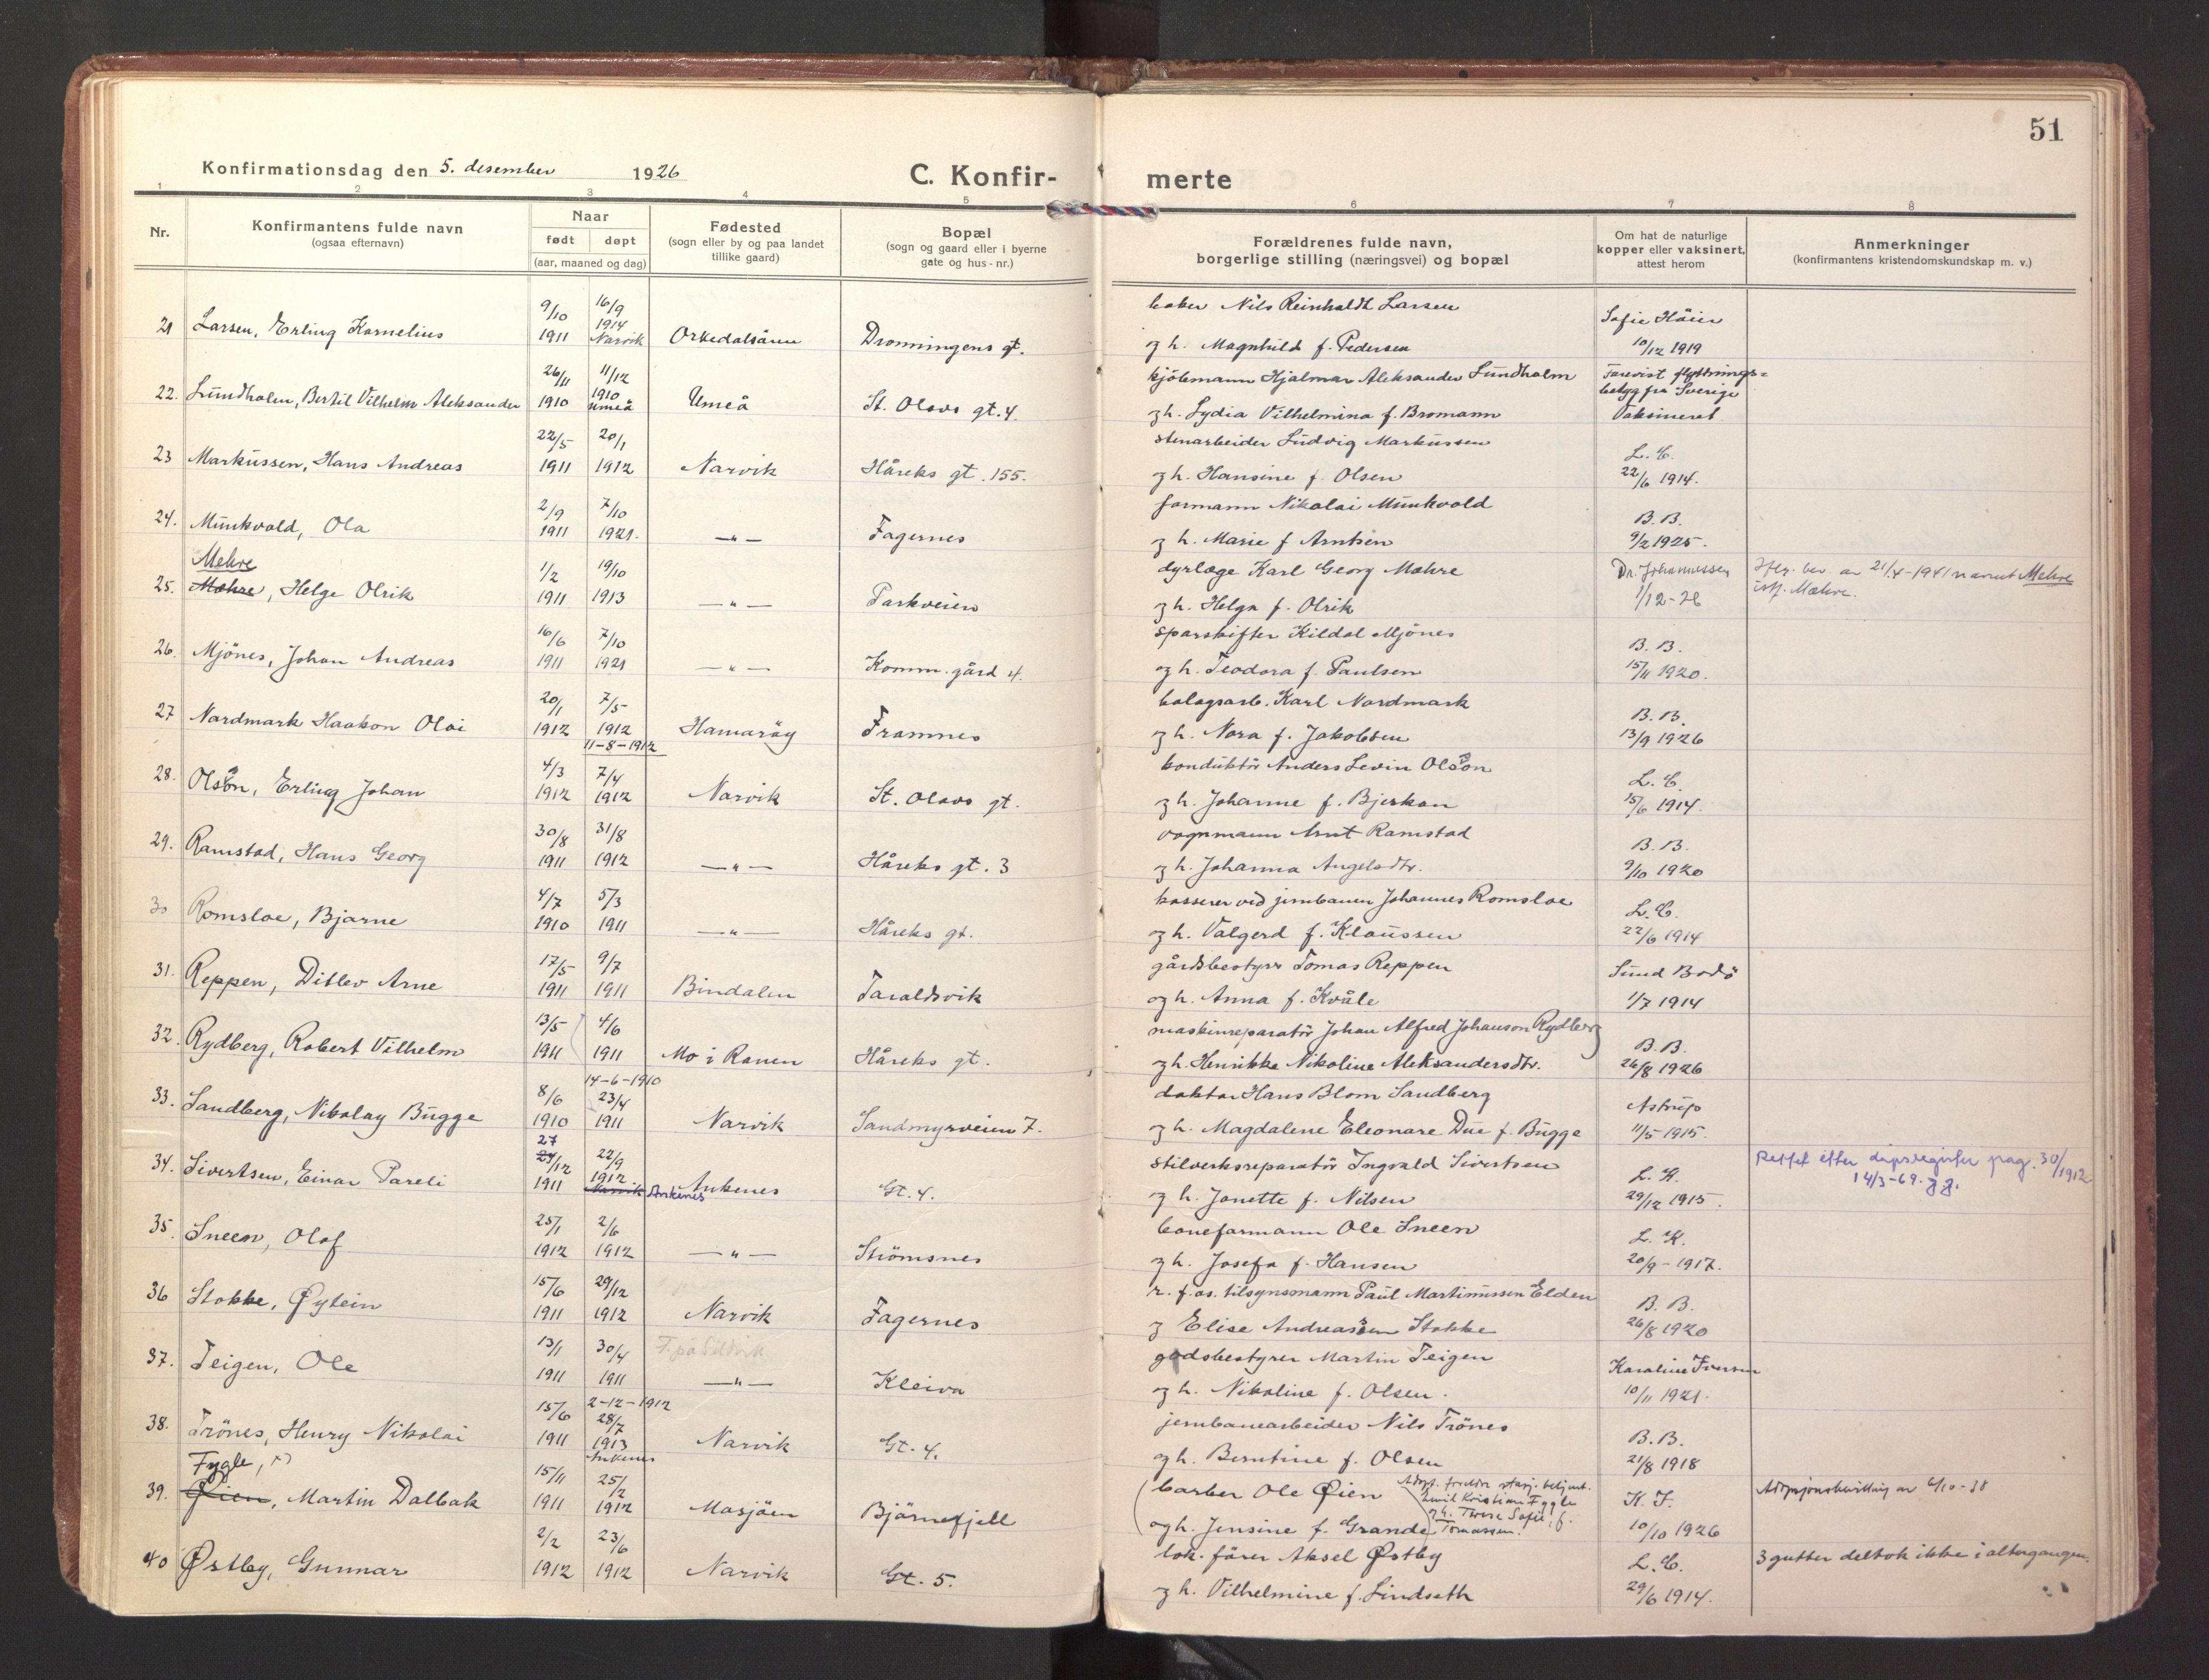 51
Konfirmationsdag den 5. desember 1926
C. Konfir- merte
1 2 3 4 5 6 7 8
Nr.
Konfirmantens fulde navn
(ogsaa efternavn)
Naar
født døpt
(aar, maaned og dag)
Fødested
(sogn eller by og paa landet
tillike gaard)
Bopæl
(sogn og gaard eller i byerne
gate og hus-nr.)
Forældrenes fulde navn,
borgerlige stilling (næringsvei) og bopæl
Om hat de naturlige
kopper eller vaksinert,
attest herom
Anmerkninger
(konfirmantens kristendomskundskap m. v.)
21 Larsen, Erling Kornelius 9/10 1911 16/9 1914 Narvik Orkedalsören Dronningens gt. baker Nils Reinholdt Larsen
og h. Magnhild f. Pedersen Sofie Höier 10/12 1919
22. Lundholm, Bertil Vilhelm Aleksander 26/11 1910 11/12 1910 Umeå Umeå St. Olavs gt. 4. kjölemann Hjalmar Aleksander Lundholm
og h. Lydia Vilhelmina f. Bromann Forevist flyttnings=
betyg fra Sverige
Vaksineret
23 Markussen, Hans Andreas 22/5 1911 20/1 1912 Narvik Håreks gt. 155. stenarbeider Ludvig Markussen
og h. Hansine f. Olsen L. C. 22/6 1914.
24. Munkvold, Ola 2/9 1911 7/10 1921. —"— Fagernes formann Nikolai Munkvold
og h. Marie f Arntsen B. B. 9/2 1925.
Mehre
25. Mæhre, Helge Olrik 1/2 1911 19/10 1913 —"— Parkveien dyrlæge Karl Georg Mæhre
og h. Helga f. Olrik Dr. Johannessen 1/12-26 Iflg. bev. av 21/4-1941 navnet Mehre
istf. Mæhre.
26. Mjönes, Johan Andreas 16/6 1911 7/10 1921 —"— Komm. gård 4. sporskifter Kildal Mjönes
og h. Teodora f. Paulsen B. B. 15/11 1920.
27 Nordmark Haakon Olai 20/1 1912 7/5 1912 11-8-1912 Hamaröy Framnes bolagsarb. Karl Nordmark
og h. Nora f. Jakobsen B. B. 13/9 1926
28. Olsson, Erling Johan 4/3 1912 7/4 1912 Narvik St. Olavs gt. konduktör Anders Levin Olsson
og h. Johanne f. Bjerkan L. C. 15/6 1914.
29. Ramstad, Hans Georg 30/8 1911 31/8 1912 —"— Håreks gt. 3 vognmann Arnt Ramstad
og h. Johanna Angelsdtr. B. B. 9/10 1920
30 Romsloe, Bjarne 4/7 1910 5/3 1911 —"— Håreks gt. kasserer ved jernbanen Johannes Romsloe
og h. Valgerd f. Klaussen L. C. 22/6 1914
31. Reppen, Ditlev Arne 17/5 1911 9/7 1911 Bindalen Taraldsvik gårdsbestyrer Tomas Reppen
og h. Anna f. Kvåle Sund Bodö 1/7 1914
32. Rydberg, Robert Vilhelm 13/5 1911 4/6 1911 Mo i Ranen Håreks gt. maskinreparatör Johan Alfred Johanson Rydberg
og h. Henrikke Nikoline Aleksandersdtr. B. B. 26/8 1926
33. Sandberg, Nikolay Bugge 8/6 1910 14-6-1910 23/4 1911 Narvik Sandmyrveien 7. doktor Hans Blom Sandberg
og h. Magdalene Eleonare Due f. Bugge Astrup 11/5 1915.
34. Sivertsen, Einar Pareli 27 24/12 1911 22/9 1912 Narvik Ankenes Ankenes Gt. 4. stilverksreparatör Ingvald Sivertsen
og h. Janette f. Nilsen L. K. 29/12 1915. Rettet etter dåpsregister pag. 30/1912
14/3-69.
35. Sneen, Olaf 25/1 1912 2/6 1912 —"— Strömsnes baneformann Ole Sneen
og h. Josefa f. Hansen L. K. 20/9 - 1917.
36 Stokke, Øystein 15/6 1911 29/12 1912 Narvik Fagernes r. f. as. tilsynsmann Paul Martinussen Elden
og Elise Andreassen Stokke B. B. 26/8 1920
37. Teigen, Ole 13/1 1911 30/4 1911 —"— Kleiva godsbestyrer Martin Teigen
og h. Nikoline f. Olsen. Karoline Iversen 10/11 1921.
38. Trönes, Henry Nikolai 15/6 1911 2-12-1912 28/7 1913 Ankenes Narvik Gt. 4. jernbanearbeider Nils Trönes
og h. Berntine f. Olsen B. B. 21/8 1918
Fygle, x)
39. Øien, Martin Dalbak 15/11 1911 25/2 1912 Mosjöen Björnefjell barber Ole Øien
og h. Jensine f. Grande Adopt. foreldre stasj. betjent.
Emil Kristian Fygle
og h. Therese Sofie, f.
Tomassen. K. F. 10/10 1926 Adopsjonsbevilling av 6/10-38
40 Østby, Gunnar 2/2 1912 23/6 1912 Narvik Gt. 5. lok. förer Aksel Østby
og h. Vilhelmine f. Lindseth L. C. 29/6 1914. 3 gutter deltok ikke i altergangen.